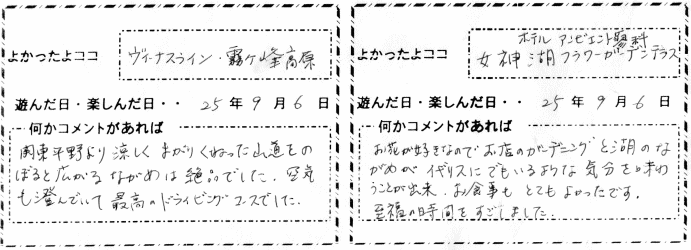 よかったよココ
ヴィーナスライン・霧ヶ峰高原
遊んだ日・楽しんだ日・・ 25年9月6日
何かコメントがあれば
関東平野より涼しくまがりくねった山道をの
ぼると広がるながめは絶品でした。空気
も澄んでいて最高のドライビングコースでした。
よかったよココ
ホテル アンビエント蓼科
女神湖フラワーガーデンテラス
遊んだ日・楽しんだ日・・ 25年9月6日
何かコメントがあれば
お花が好きなのでお店のガーデニングと湖のな
がめがイギリスにでもいるような気分を味わ
うことが出来、お食事もとてもよかったです。
至福の時間をすごしました。